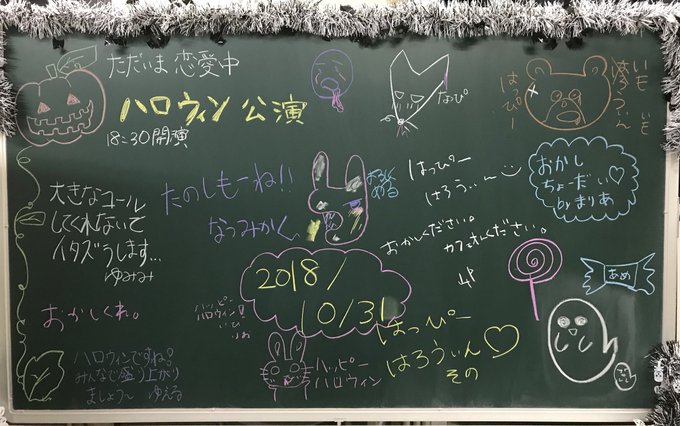 ただいま 恋愛中
ハロウィン 公演
18:30開演
なっぴ
はっぴー
大きなコール
してくれないと
イタズラします…
ゆみみ
たのしもーね!!
なつみかん
はっぴー
はろうぃーん
おかし
ちょーだい♡
by まりあ
おかしください。
カフェオレください。
2018/
10/31
おかしくれ。
ハッピー
ハロウィン
あめ
はっぴー
はろうぃん♡
その
ハッピー
ハロウィン
ハロウィンですね?
みんなで盛り上がり
ましょう〜 ゆえる